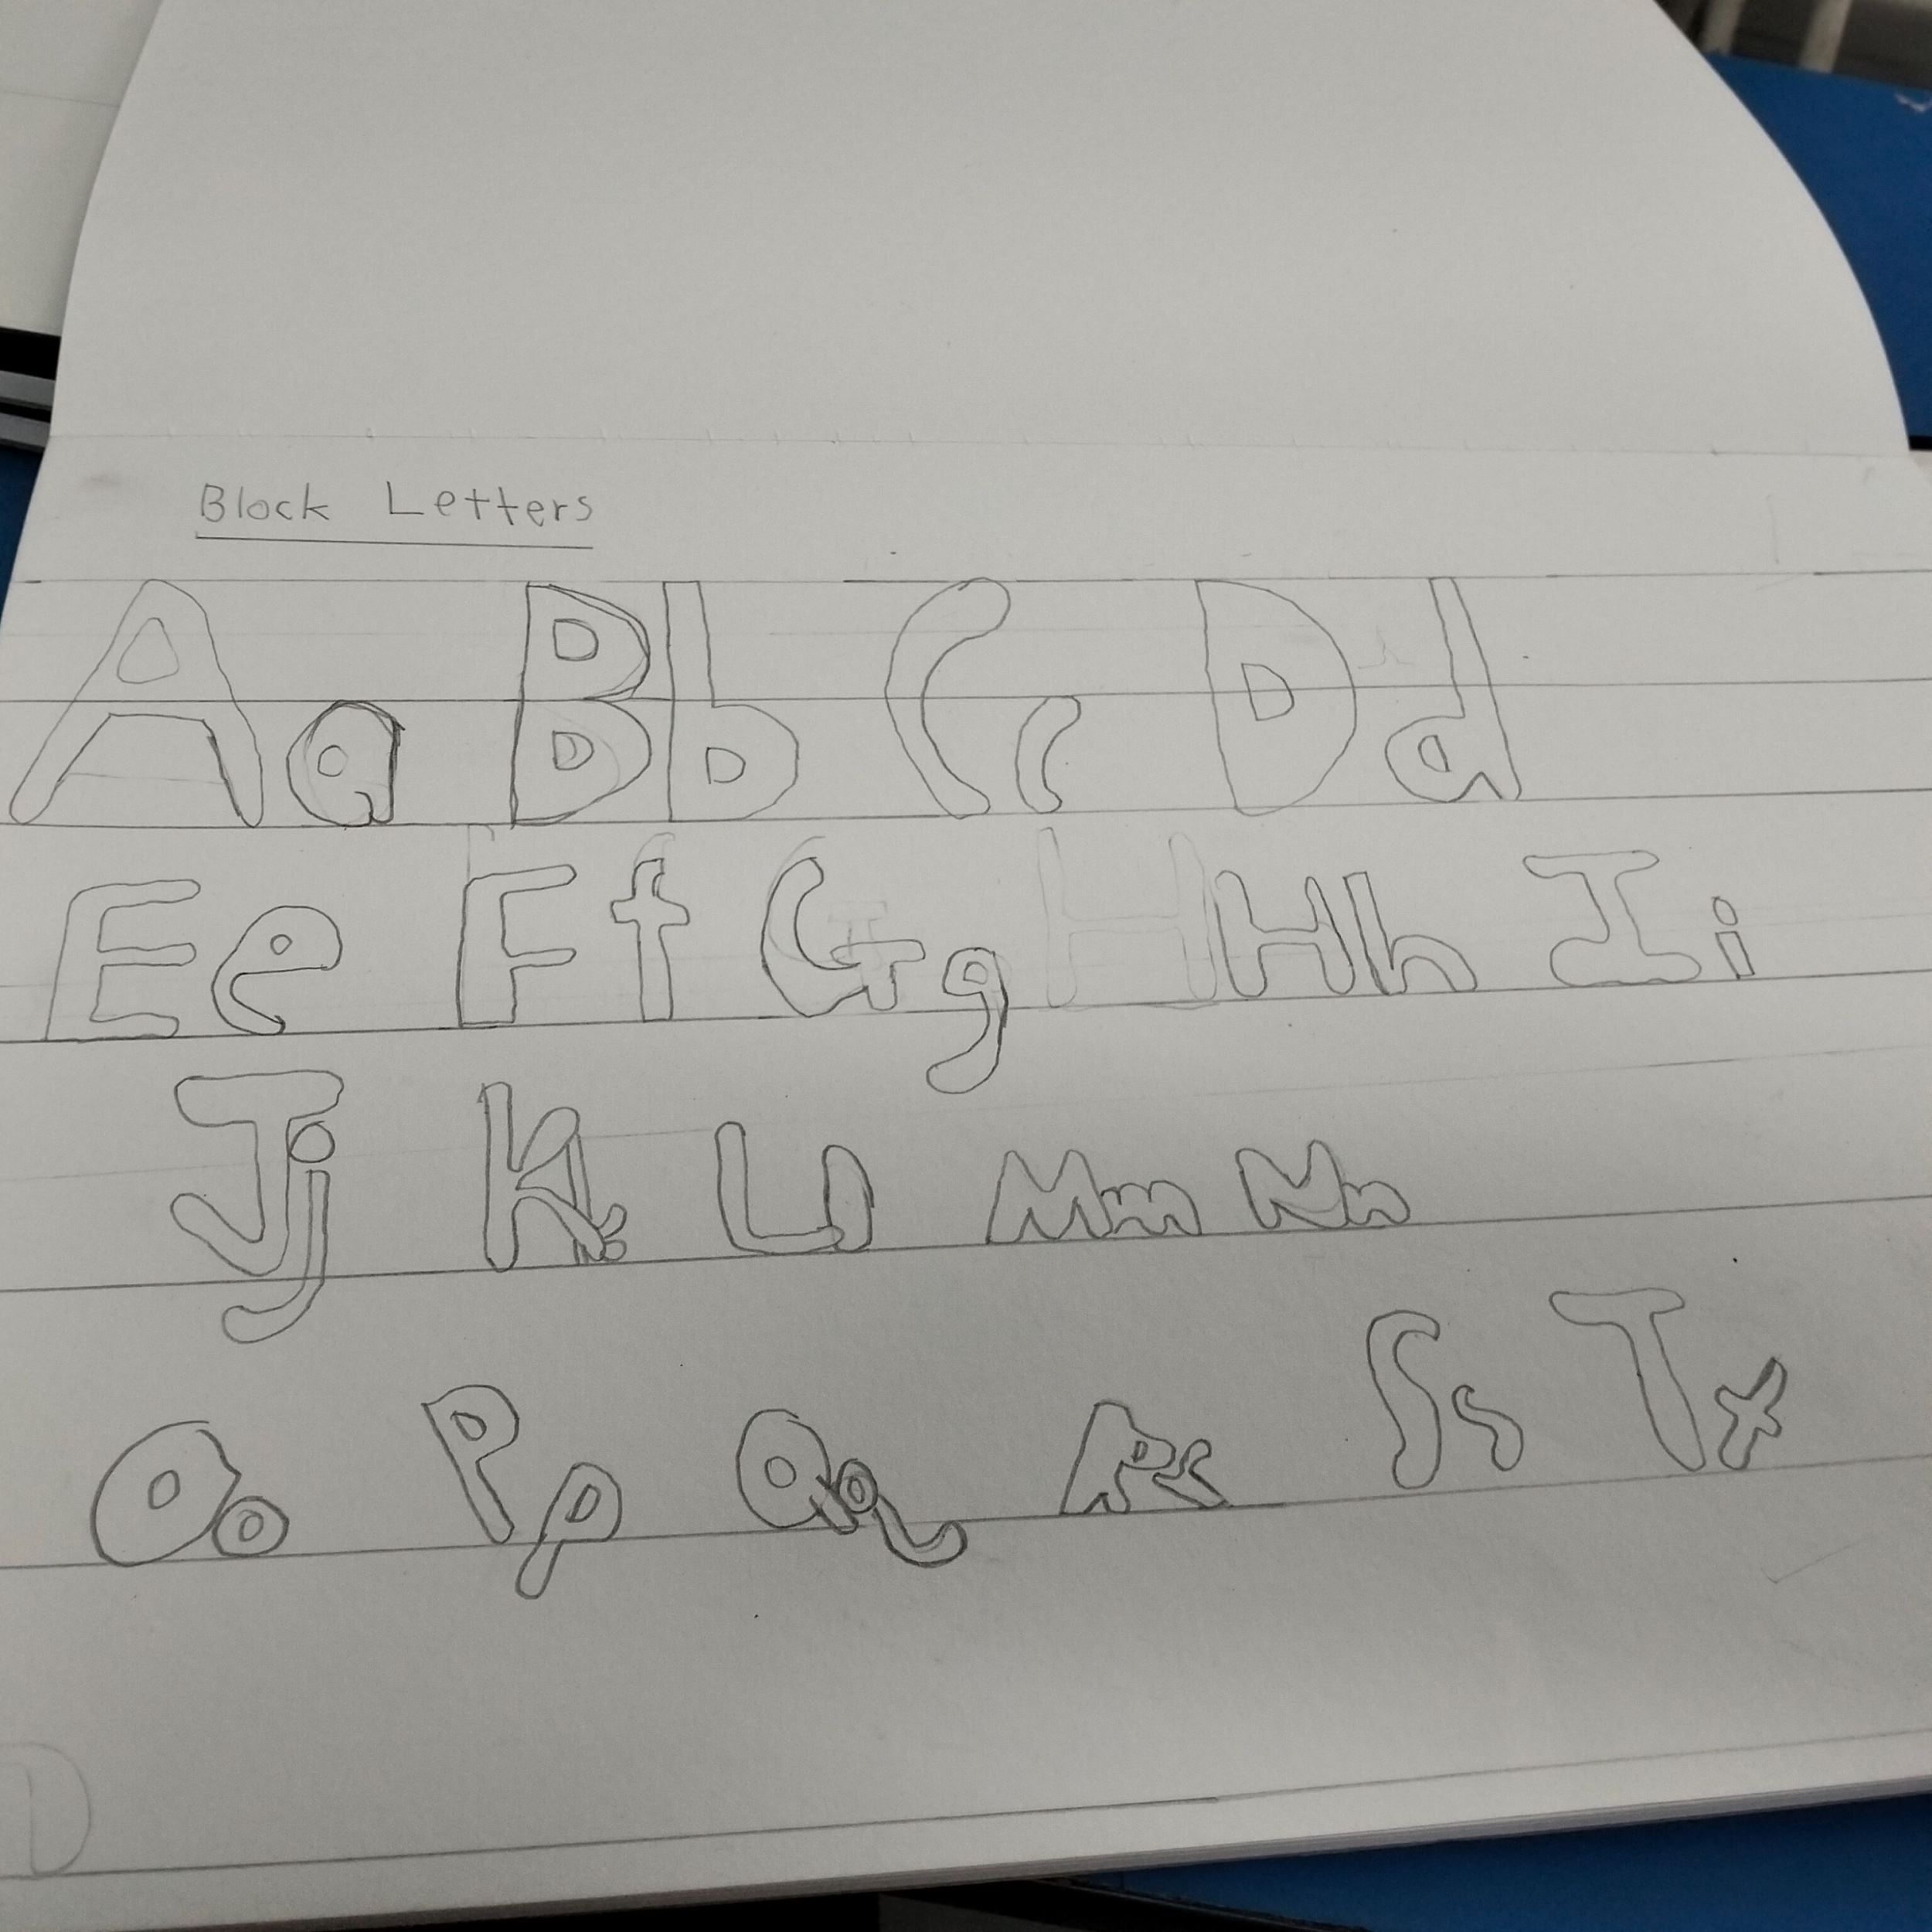 Block Letters
Aa Bb Cc Dd
Ee Ff Gg H Hh Ii
Jj Kk Ll Mm Nn
Oo Pp Qq Rr Ss Tt
D